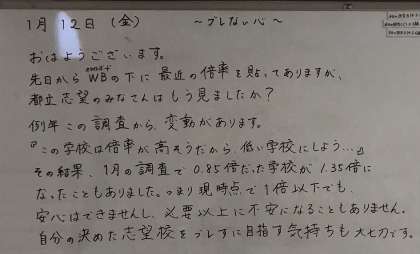 1月12日(金) 〜ブレない心〜
おはようございます。
先日からWBの下に最近の倍率を貼ってありますが、
都立志望のみなさんはもう見ましたか?
例年この調査から、変動があります。
『この学校は倍率が高そうだから、低い学校にしよう…』
その結果、1月の調査で0.85倍だった学校が1.35倍に
なったこともありました。つまり現時点で1倍以下でも、
安心はできませんし、必要以上に不安になることもありません。
自分の決めた志望校をブレずに目指す気持ちも大切です。